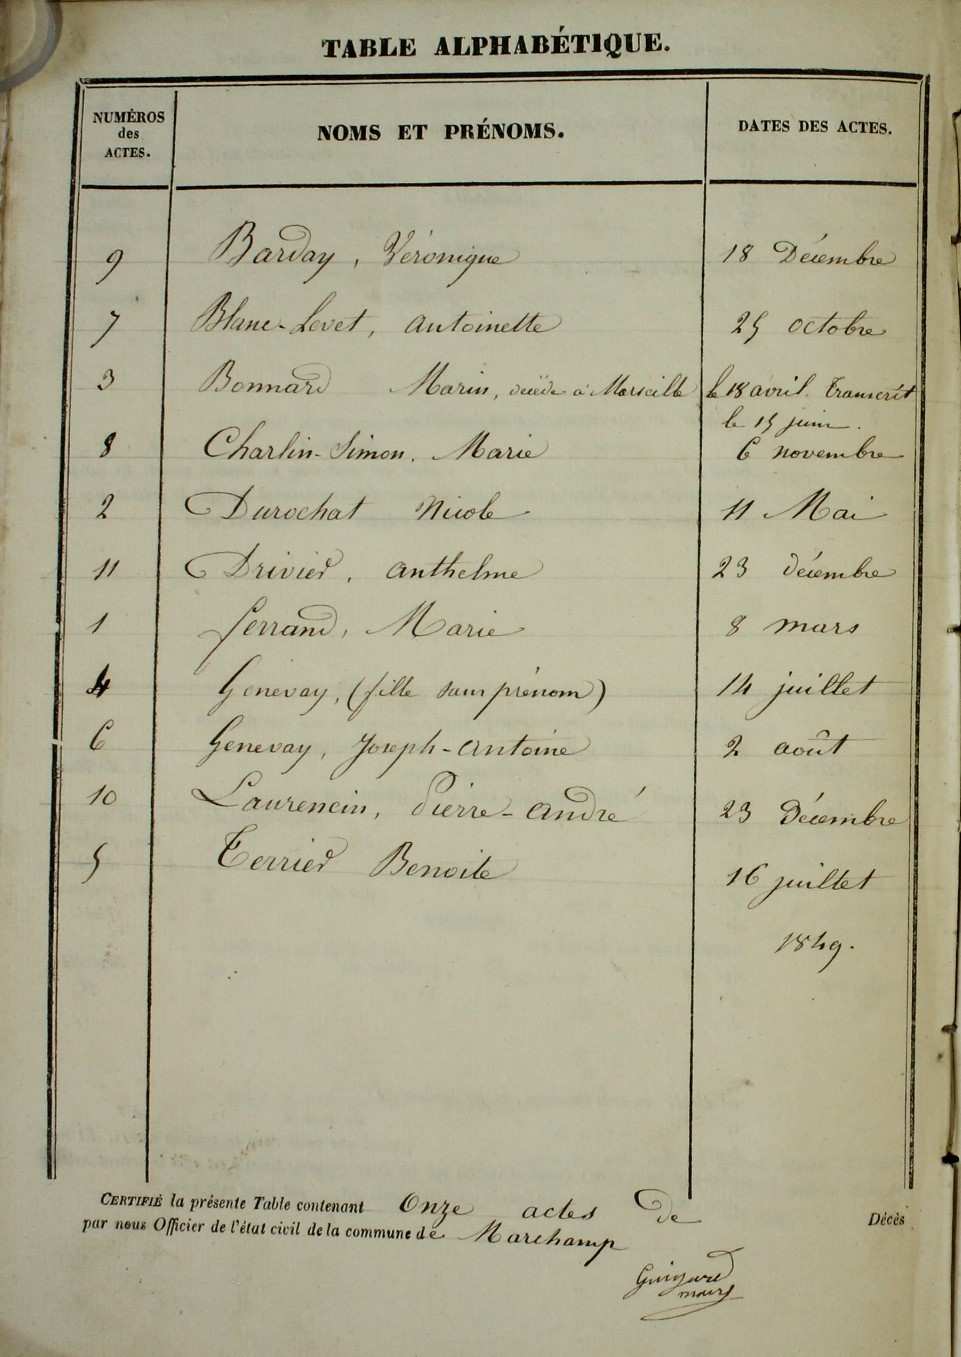 TABLE ALPHABÉTIQUE.
NUMÉROS des ACTES. NOMS ET PRÉNOMS. DATES DES ACTES.
9 Barday, Véronique 18 Décembre
7 Blanc-Levet, Antoinette 25 octobre
3 Bonnard Marin, décédé à Marseille le 18 avril. Transcrit
le 15 juin.
8 Charlin-Simon, Marie 6 novembre
2 Durochat Nicole 11 Mai
11 Drivier, Anthelme 23 décembre
1 Ferrand, Marie 8 mars
4 Genevay, (fille sans prénom) 14 juillet
6 Genevay, Joseph-Antoine 2 août
10 Laurencin, Pierre-André 23 Décembre
5 Terrier Benoite 16 juillet
1849.
CERTIFIÉ la présente Table contenant Onze actes de Décès
par nous Officier de l'état civil de la commune de Marchamp
maire